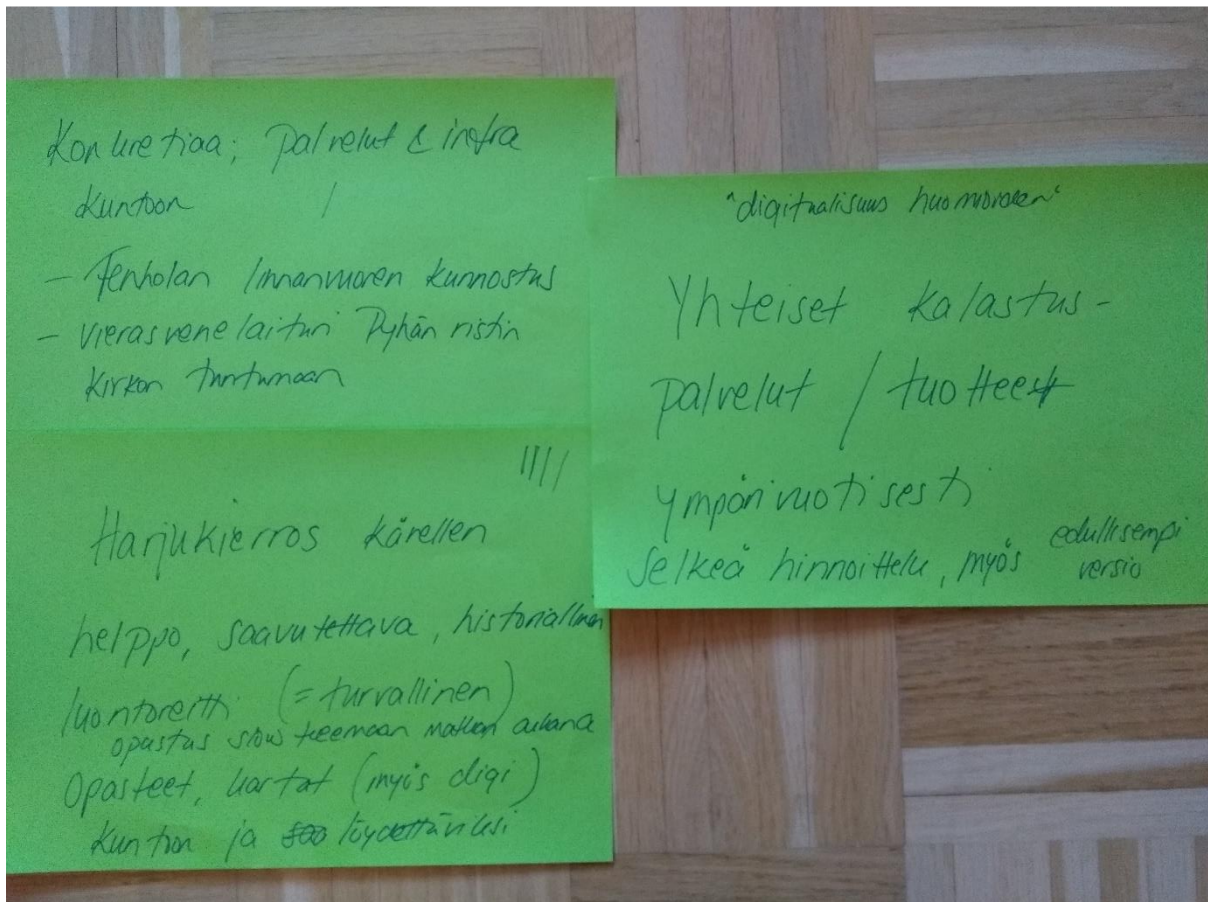 Konkretiaa; palvelut & infra
kuntoon /
- Tenholan linnanvuoren kunnostus
- vierasvenelaituri Pyhän ristin
kirkon tuntumaan
||||
Harjukierros kävellen
helppo, saavutettava, historiallinen
luontoreitti (= turvallinen)
opastus slow teemaan matkan aikana
Opasteet, kartat (myös digi)
kuntoon ja löydettäviksi
"digitaalisuus huomioiden"
Yhteiset kalastus-
palvelut / tuotteet
ympärivuotisesti
Selkeä hinnoittelu, myös edullisempi
versio